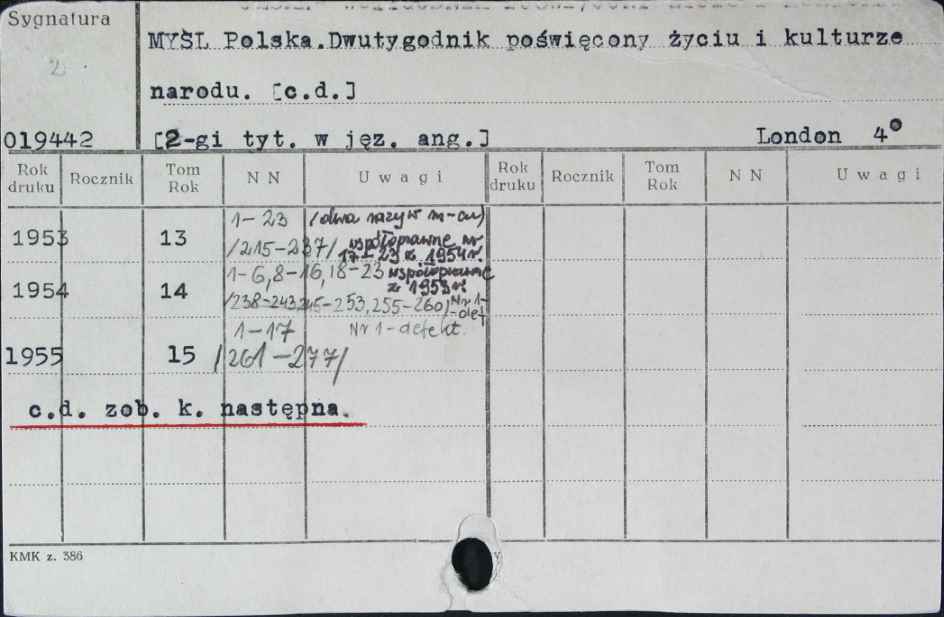 Sygnatura
2
019442
MYŚL Polska.Dwutygodnik poświęcony życiu i kulturze
narodu. [c.d.]
[2-gi tyt. w jęz. ang.] London 4°
Rok druku Rocznik Tom Rok N N Uwagi Rok druku Rocznik Tom Rok N N Uwagi
1-23 /dwa razy w m-cu/
1953 13 /215-237/ współoprawne nr
17-23 z 1954 r.
1-6,8-16,18-23 współoprawne
1954 14 z 1953 r.
/238-243,245-253,255-260/ Nr 1-
-def.
1-17 Nr 1-defekt.
1955 15 /261-277/
c.d. zob. k. następna.
KMK z. 386